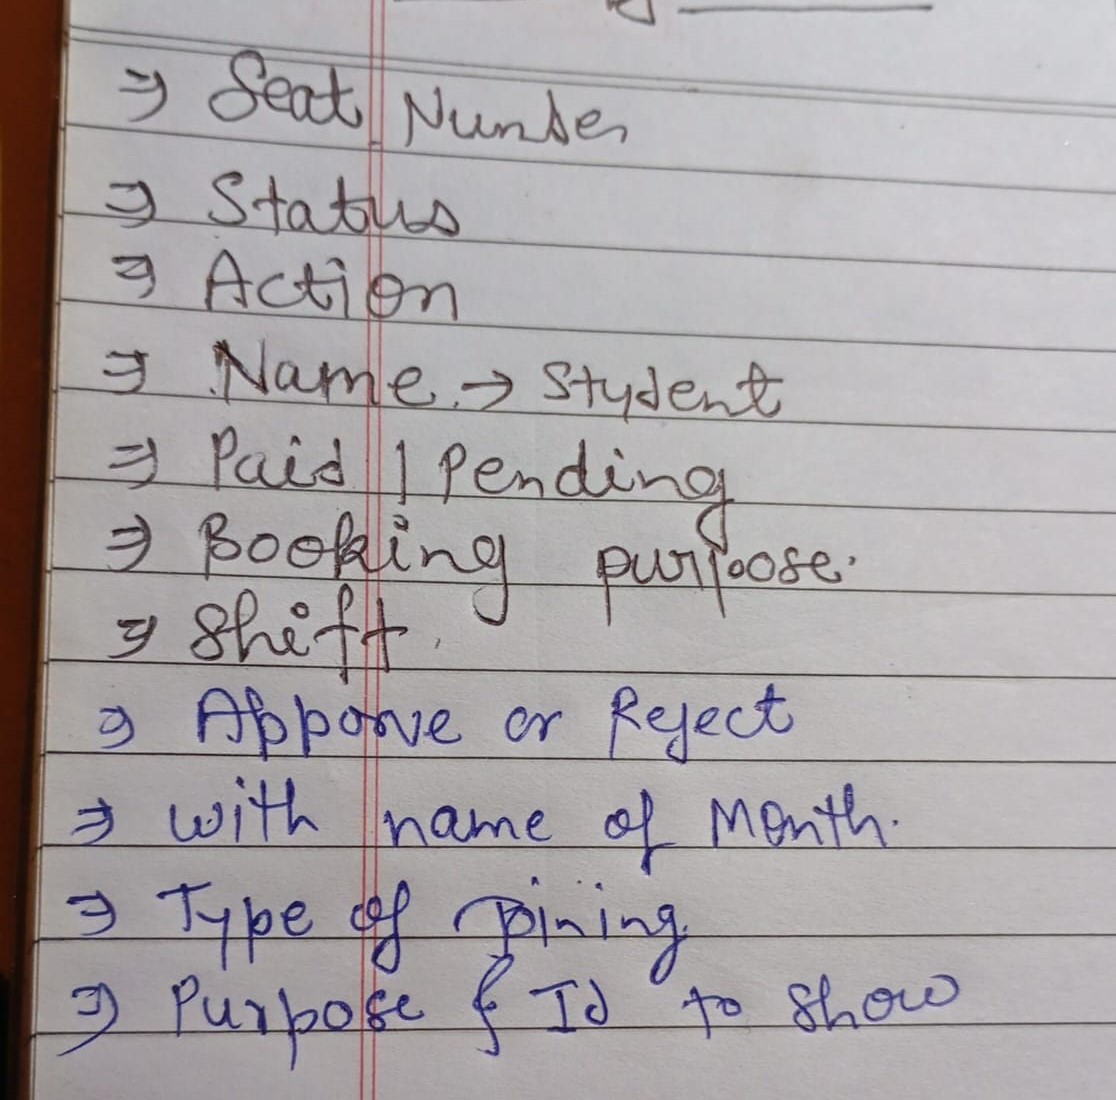 ⇒ Seat Number
⇒ Status
⇒ Action
⇒ Name → Student
⇒ Paid | Pending
⇒ Booking purpose.
⇒ Shift.
⇒ Approve or Reject
⇒ with name of Month.
⇒ Type of Joining
⇒ Purpose & Id to show